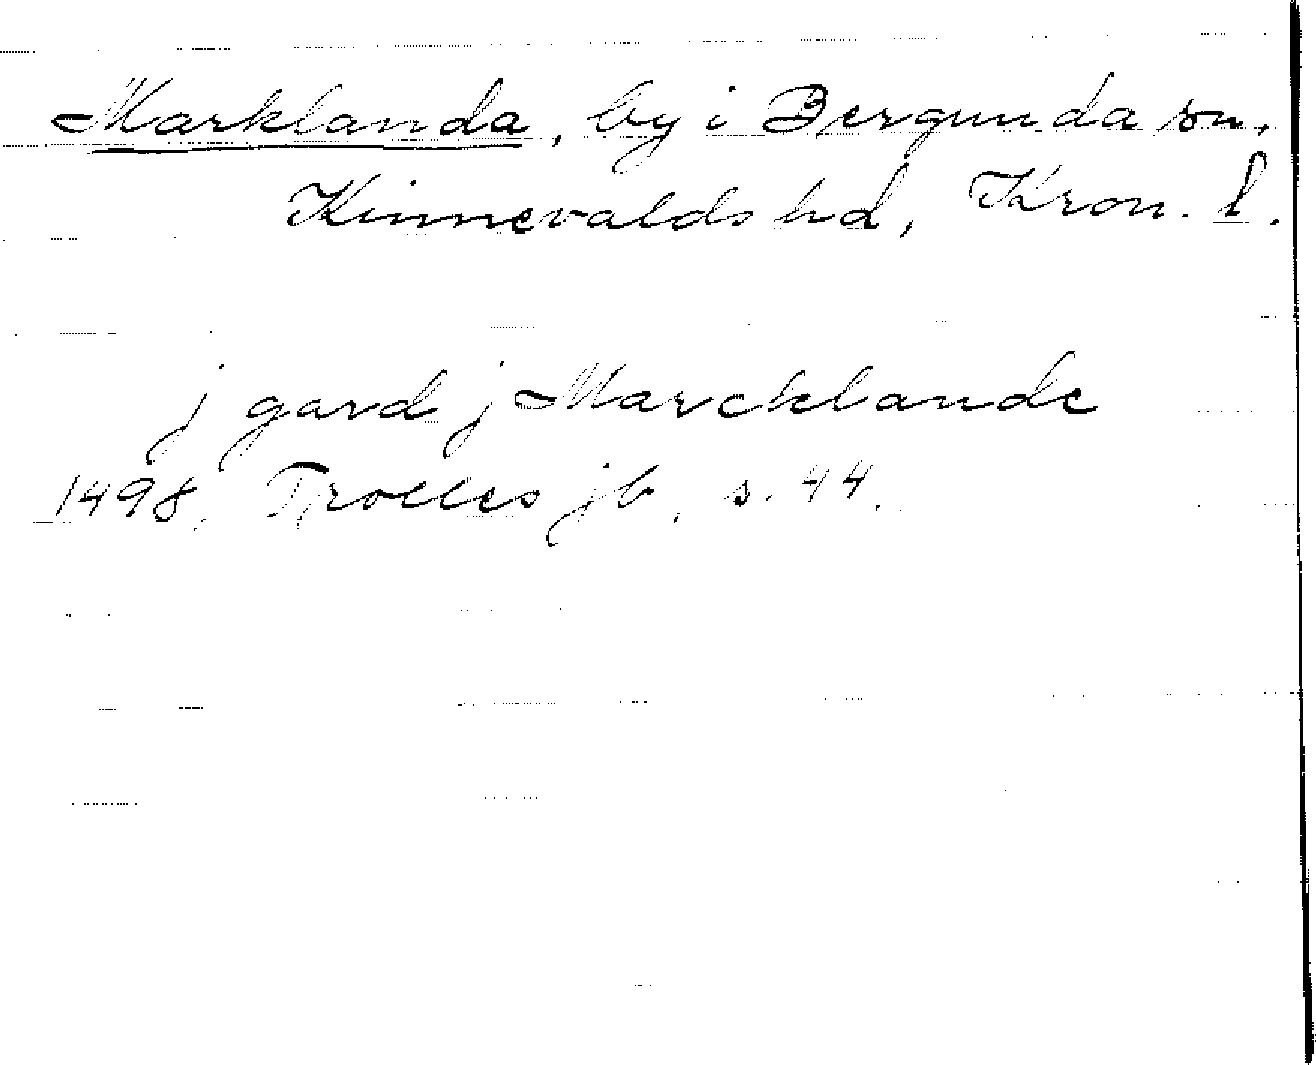 Marklanda, by i Bergunda sn,
Kinnevalds hd, Kron. l.
j gard j Marcklande
1498, Trolles jb, s. 44.